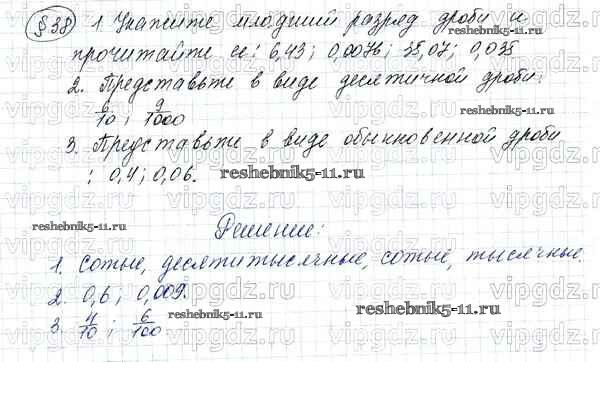 § 38 1. Укажите младший разряд дроби и
прочитайте её: 6,43; 0,0076; 35,07; 0,035
2. Представьте в виде десятичной дроби:
6/10; 9/1000
3. Представьте в виде обыкновенной дроби
: 0,4; 0,06.
Решение:
1. Сотые, десятитысячные, сотые, тысячные.
2. 0,6; 0,009.
3. 4/10; 6/100
reshebnik5-11.ru
reshebnik5-11.ru
reshebnik5-11.ru
reshebnik5-11.ru
reshebnik5-11.ru
vipgdz.ru